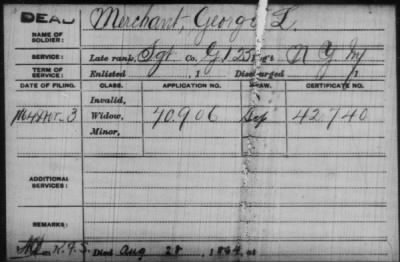 DEAD
NAME OF SOLDIER: Merchant, George L.
SERVICE: Late rank, Sgt Co. G, 125 Reg't N Y Inf
TERM OF SERVICE: Enlisted , 1 Discharged , 1
DATE OF FILING. CLASS. APPLICATION NO. LAW. CERTIFICATE NO.
Invalid,
3 Widow, 40.906 42740
Minor,
ADDITIONAL SERVICES:
REMARKS:
Died Aug 28, 1864, at